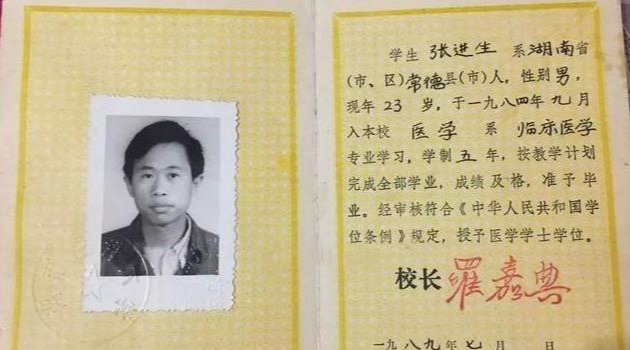 学生 张进生 系湖南省
(市、区)常德县(市)人，性别男，
现年23岁，于一九八四年九月
入本校 医学 系 临床医学
专业学习，学制五年，按教学计划
完成全部学业，成绩及格，准予毕
业。经审核符合《中华人民共和国学
位条例》规定，授予医学学士学位。
校长 罗嘉典
一九八九年七月 日